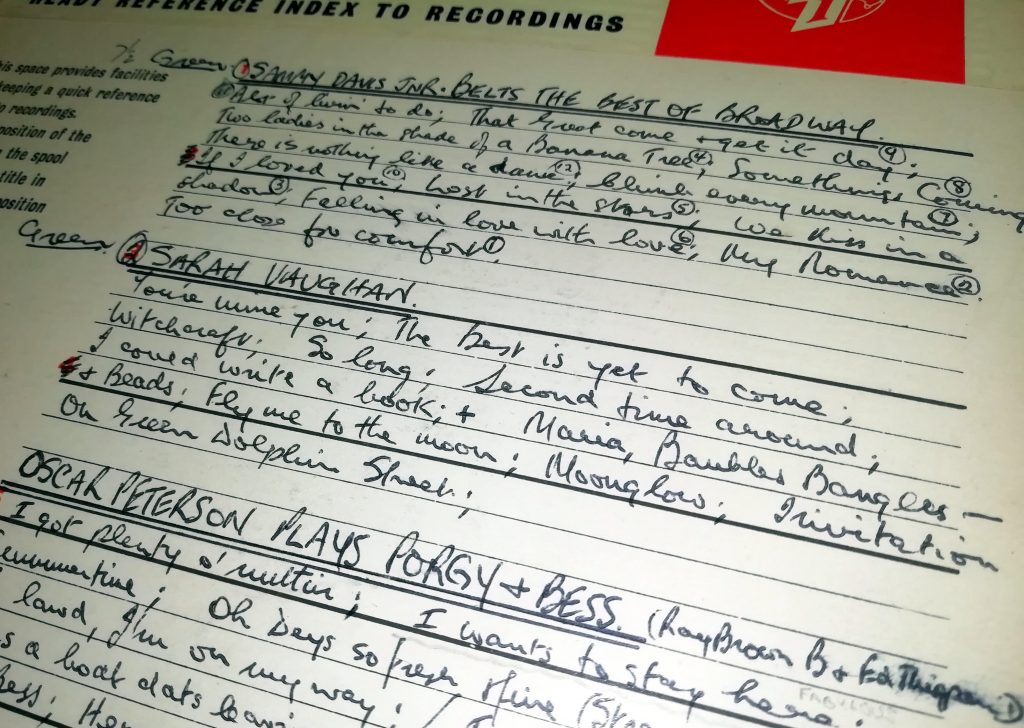 READY REFERENCE INDEX TO RECORDINGS
his space provides facilities
keeping a quick reference
o recordings.
position of the
the spool
title in
position
7½ Green ① SAMMY DAVIS JNR. BELTS THE BEST OF BROADWAY.
A lot of livin to do; That Great come + get it day ⑨;
Two ladies in the shade of a Banana Tree ④; Something's Coming ⑧
There is nothing like a dame ⑫; climb every mountain ⑦;
If I loved you ⑩; Lost in the stars ⑤; We kiss in a
shadow ③; Falling in love with love ⑥; My Romance ②.
Too close for comfort ①.
Green. ② SARAH VAUGHAN.
You're mine you; The best is yet to come;
Witchcraft; So long; Second time around;
I could write a book; + Maria, Baubles Bangles —
+ Beads; Fly me to the moon; Moonglow; Invitation
On Green Dolphin Street;
OSCAR PETERSON PLAYS PORGY + BESS. (Ray Brown B + Ed Thigpen D)
I got plenty o' nuttin; I wants to stay here;
Summertine; Oh Deys so fresh + fine
lawd, I'm on my way;
s a boat dats leavin
Bess;